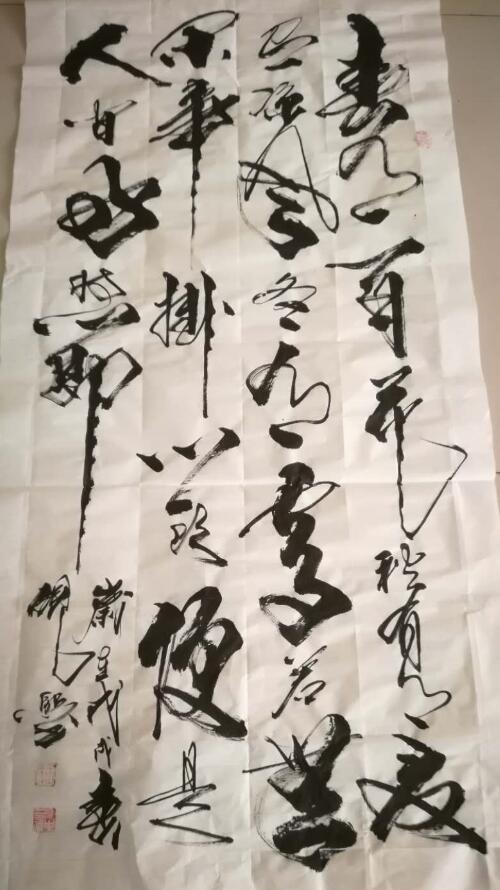 春有百花秋有月夏
有凉风冬有雪若無
闲事掛心頭便是
人间好時節
歲在戊戌春